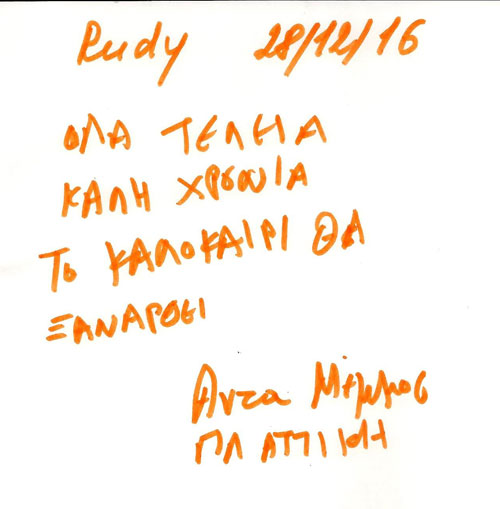 Rudy 28/12/16
ΟΛΑ ΤΕΛΕΙΑ
ΚΑΛΗ ΧΡΟΝΙΑ
Το ΚΑΛΟΚΑΙΡΙ ΘΑ
ΞΑΝΑΡΘΕΙ